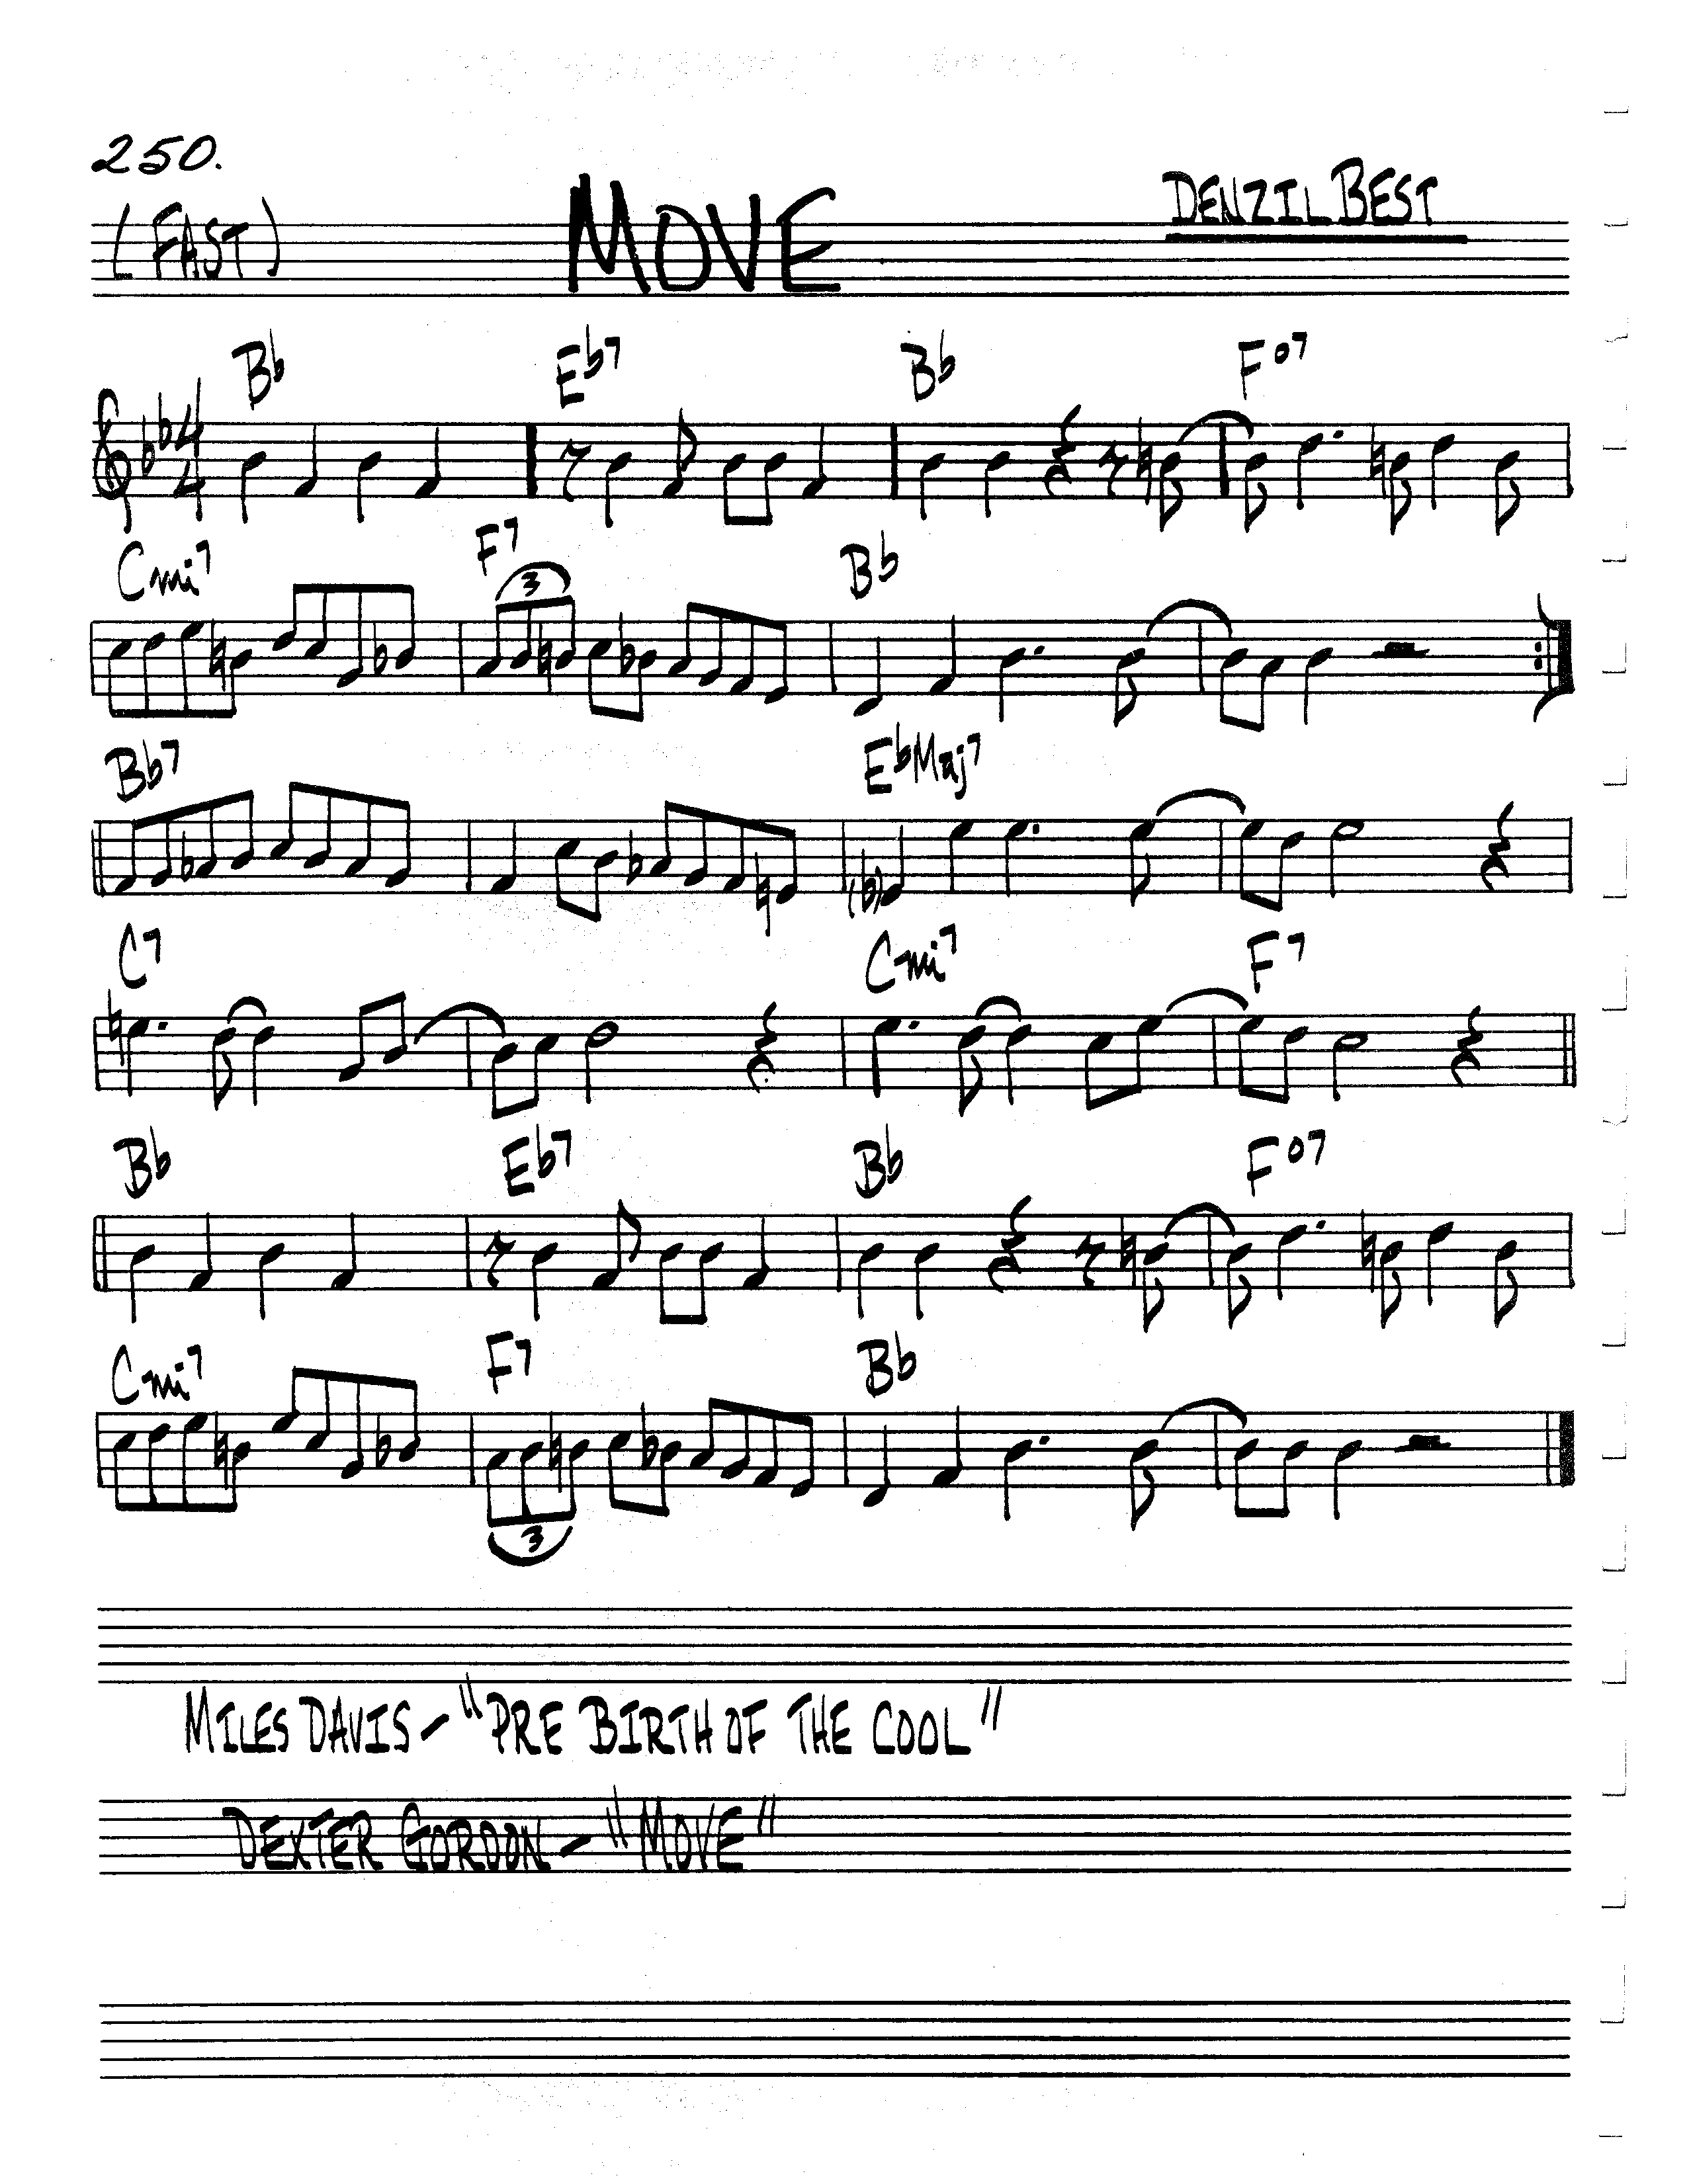 250.
(FAST) MOVE DENZIL BEST
Bb Eb7 Bb Fo7
4
4
Cmi7 F7 Bb
3
Bb7 EbMaj7
(b)
C7 Cmi7 F7
Bb Eb7 Bb Fo7
Cmi7 F7 Bb
3
MILES DAVIS - "PRE BIRTH OF THE COOL"
DEXTER GORDON - "MOVE"